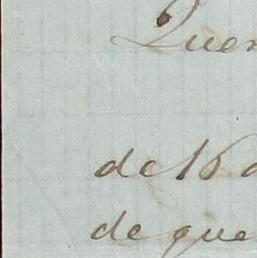 Quer
de 16 d
de que